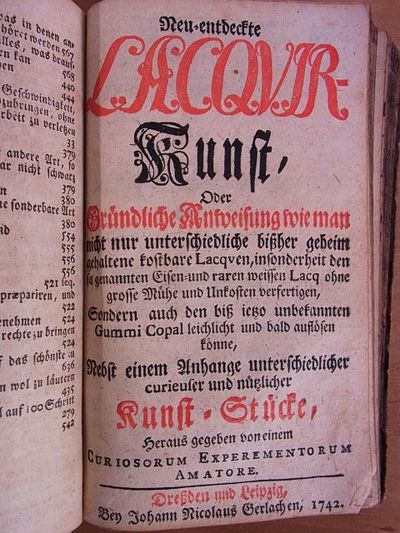 was in denen an
höret werden 567
568
440
444
Geschwindigkeit,
zubringen, ohne
rbeit zu verletzen
33
andere Art, so 379
ar nicht schwartz
379
380
ne sonderbare Art
380
554
555
556
556
521 seq.
præpariren, und
522
ernehmen 524
rechte zu bringen
524
f das schönste zu
636
n wol zu läutern
435
l auf 100 Schritt
279
542
Neu-entdeckte
LACQVIR-
Kunst,
Oder
Gründliche Anweisung wie man
nicht nur unterschiedliche bißher geheim
gehaltene kostbare Lacqven, insonderheit den
so genannten Eisen- und raren weissen Lacq ohne
grosse Mühe und Unkosten verfertigen,
Sondern auch den biß ietzo unbekannten
Gummi Copal leichlicht und bald auflösen
könne,
Nebst einem Anhange unterschiedlicher
curieuser und nützlicher
Kunst-Stücke,
Heraus gegeben von einem
CURIOSORUM EXPEREMENTORUM
AMATORE.
Dreßden und Leipzig,
Bey Johann Nicolaus Gerlachen, 1742.